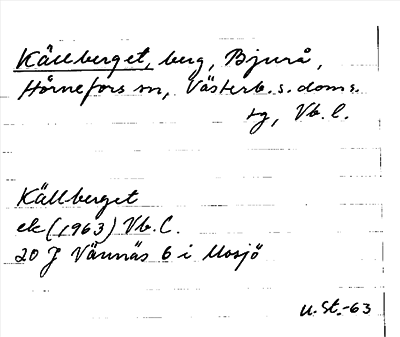 Källberget, berg, Bjurå,
Hörnefors sn, Västerb. s. doms.
tg, Vb. l.
Källberget
ek (1963) Vb. l.
20 J Vännäs 6 i Mosjö
U. St. -63